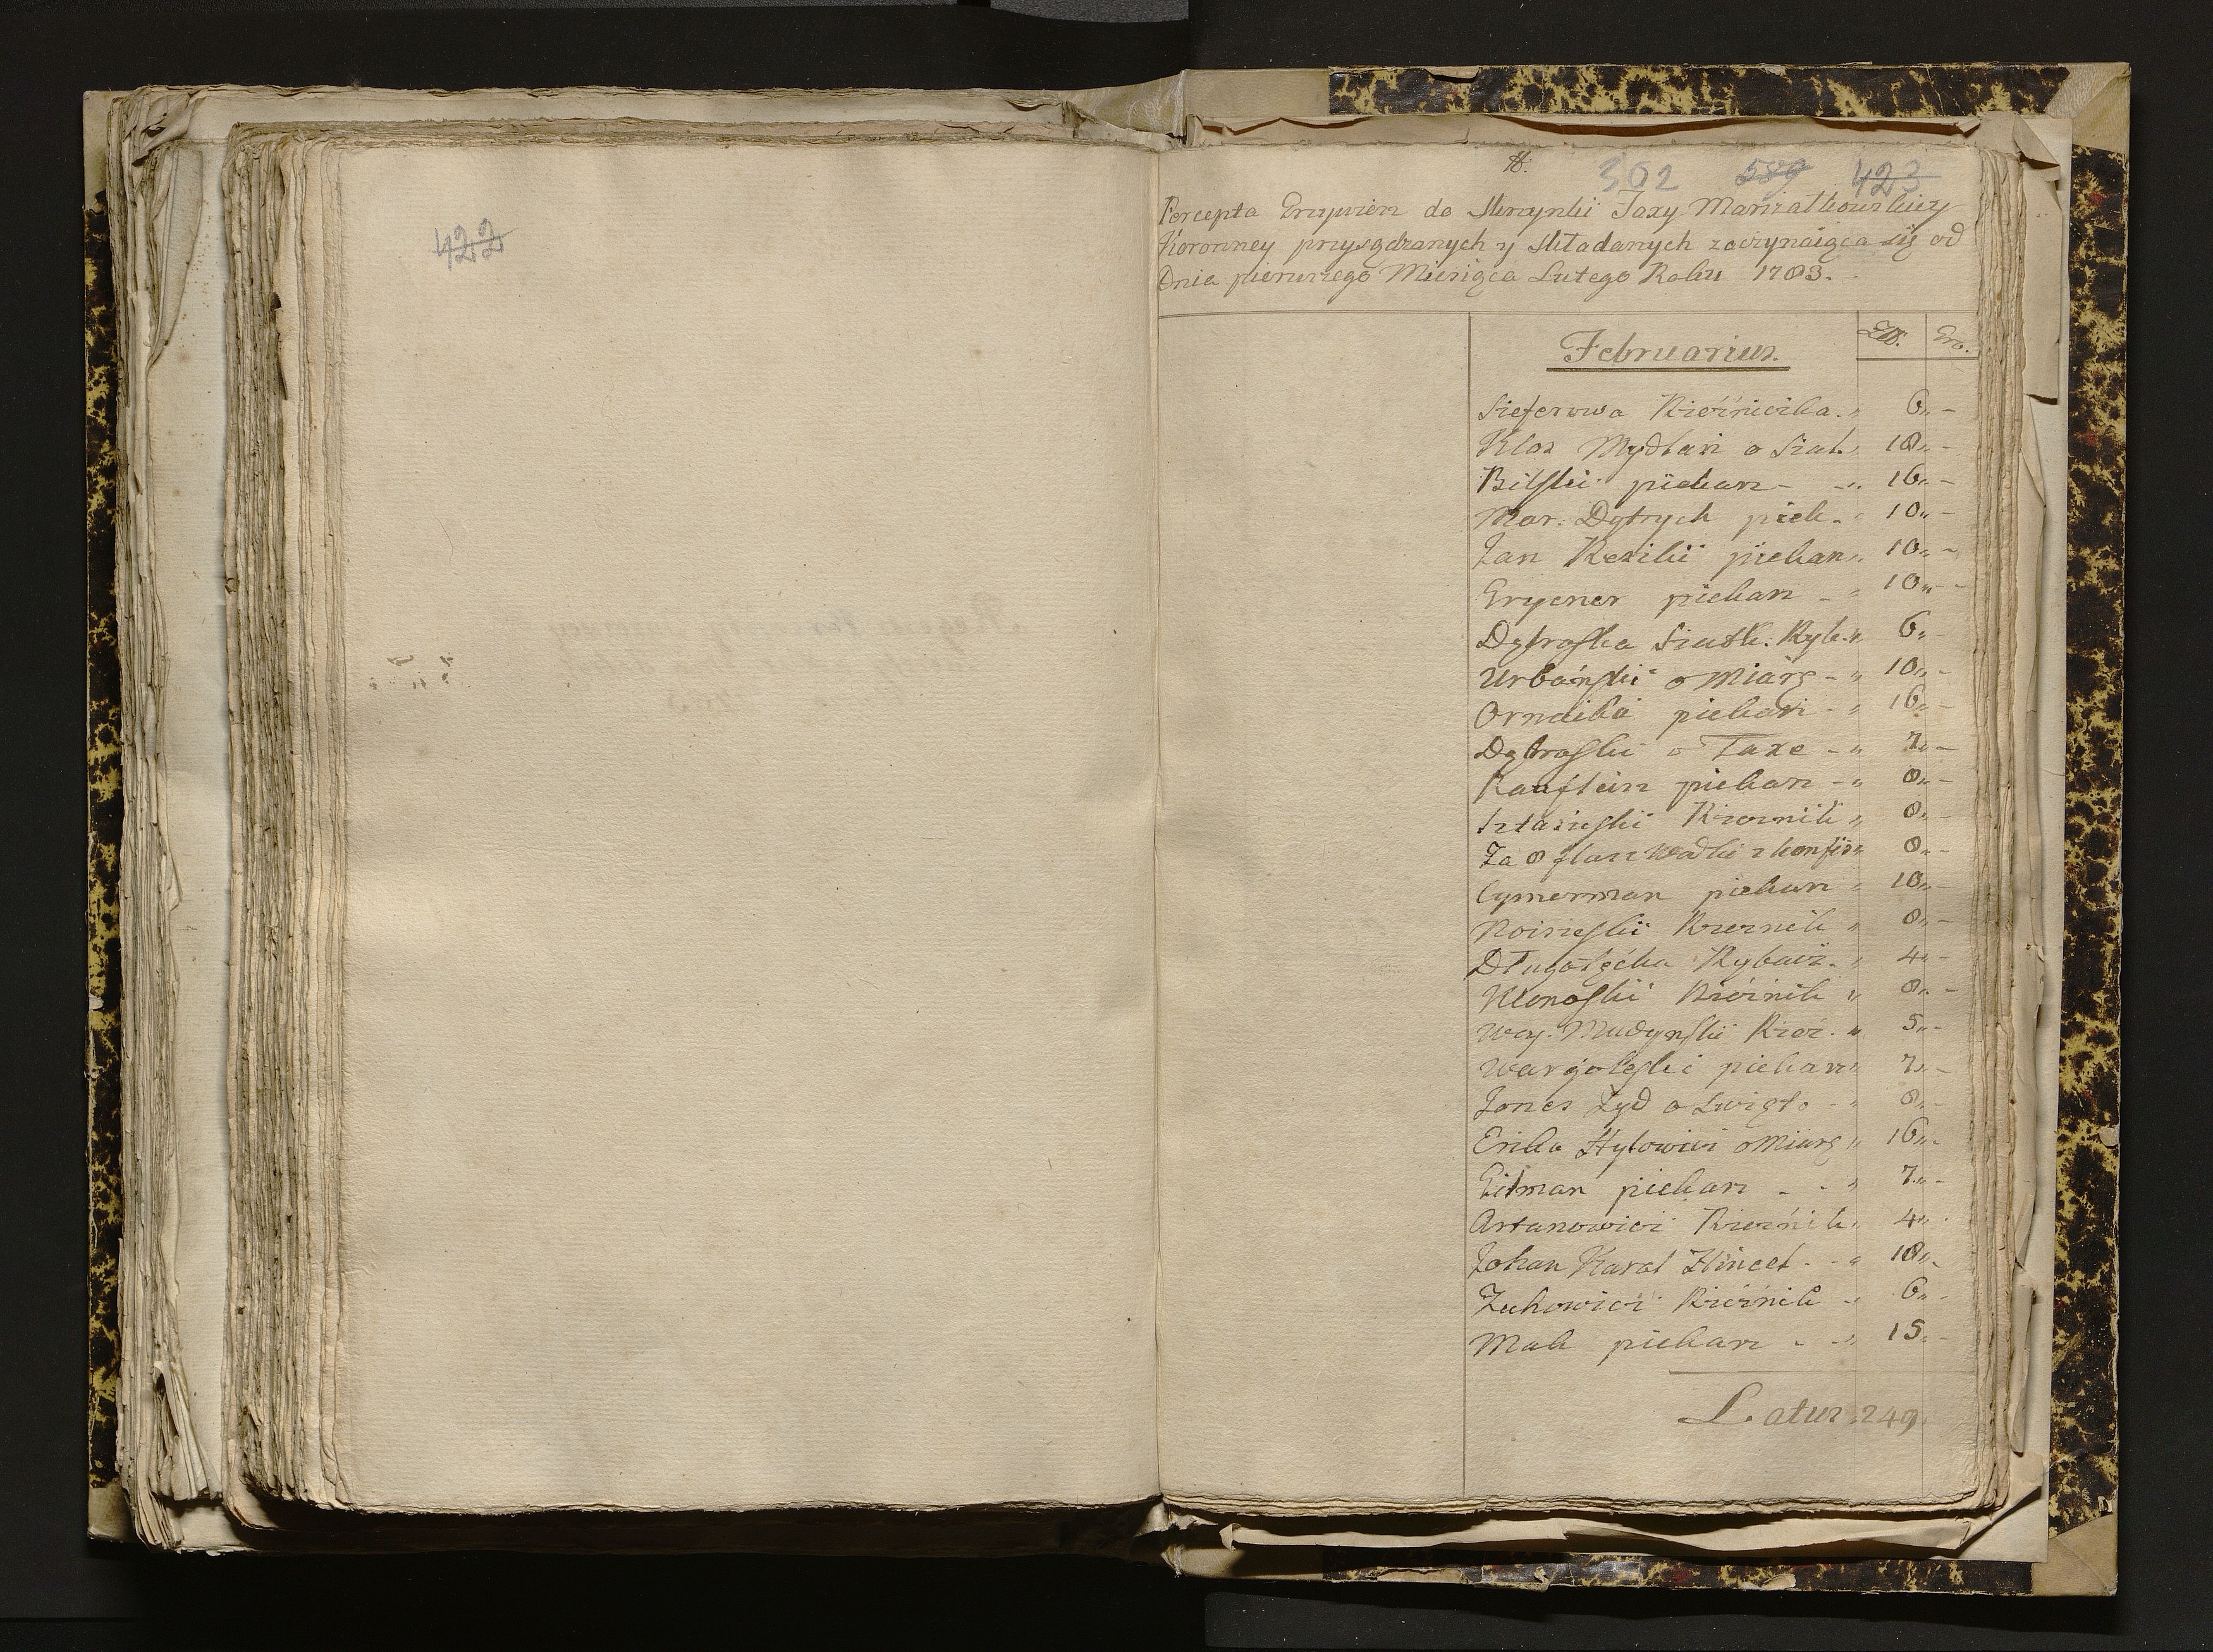 422
302 589 423
Percepta Grzywien do Skrzynki Taxy Marszałkowskiey
Koronney przysądzanych y składanych zaczynaiąca się od
Dnia pierwszego Miesiąca Lutego Roku 1783.
Februarius. Złł. Gro.
Sieferowa Rzeźniczka. " 6 " -
Klos Mydlarz o Szal. " 18 " -
Bilski piekarz - " 16 " -
Mar. Dytrych piek. " 10 " -
Jan Kezikii piekarz " 10 " -
Grycner piekarz - " 10 " -
Dąbroska Ryb. " 6 " -
Urbański o Miarę - " 10 " -
piekarz - " 16 " -
Dąbroski o Taxe - " 7 " -
Raufstein piekarz - " 8 " -
Rzeznik " 8 " -
Za 8 flasz Wodki z konfis " 8 " -
Cymerman piekarz " 10 " -
Noiszeski Rzeznik " 8 " -
Rybacz. " 4 " -
Klonoski Rzeźnik " 8 " -
Woy. Mudynski Rzez. " 5 " -
Wargoleski piekarz " 7 " -
Jones Żyd o Swięto - " 8 " -
Hytowicz o Miarę " 16 " -
Gitman piekarz - - " 7 " -
Artanowicz Rzeźnik " 4 " -
Johan Karol Hincel - - " 18 " -
Zuchowicz Rzeźnik - " 6 " -
Mak piekarz - - " 15 " -
Latus 249